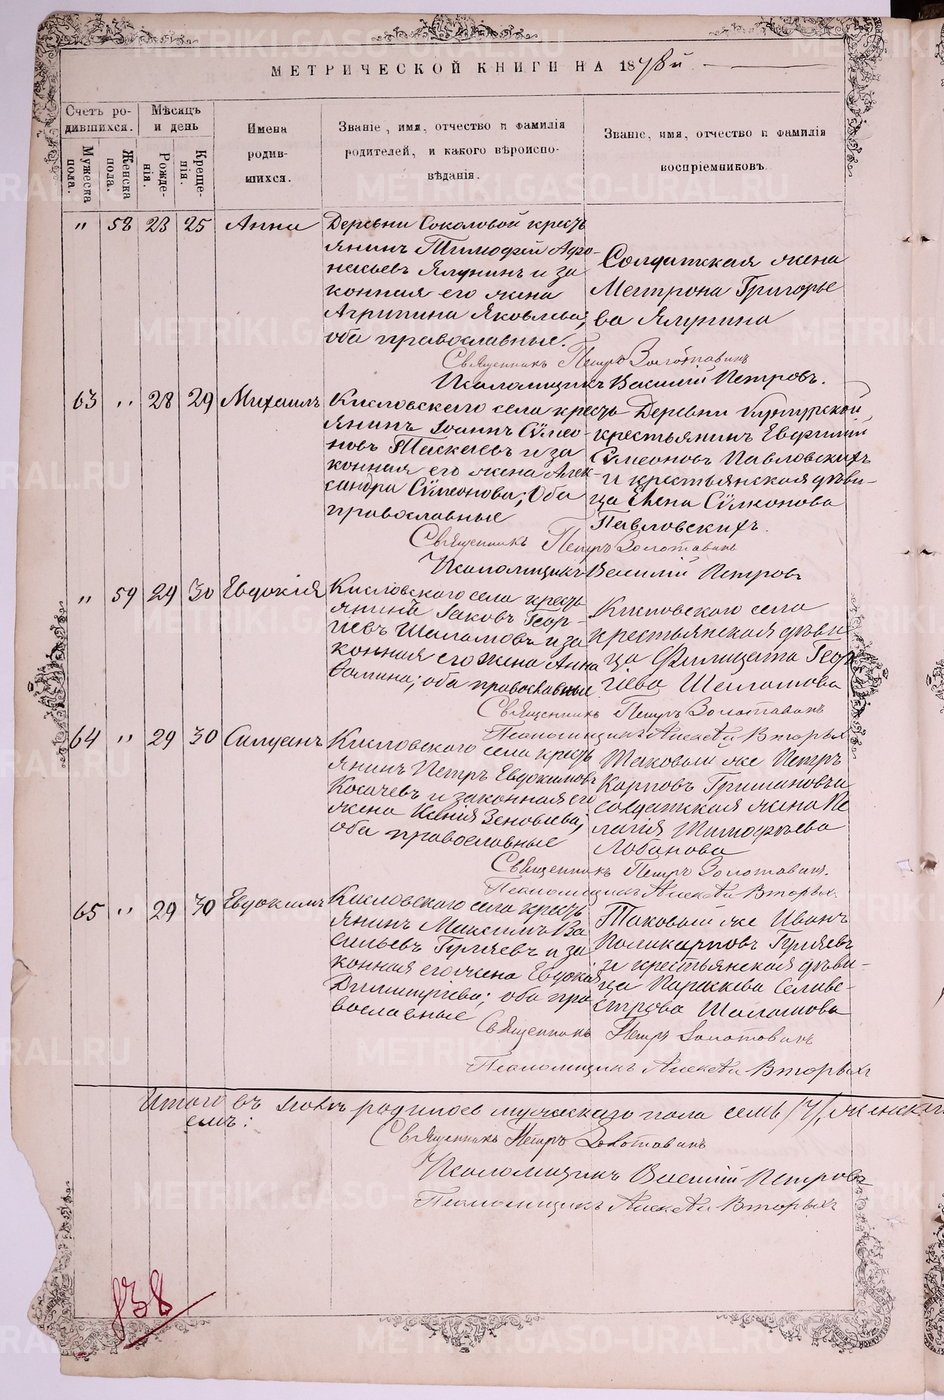 МЕТРИЧЕСКОЙ КНИГИ НА 1878й
Счетъ родившихся. Мѣсяцъ и день
Имена родившихся.
Званіе, имя, отчество и фамилія родителей, и какого вѣроисповѣданія.
Званіе, имя, отчество и фамилія воспріемниковъ.
Мужеска пола. Женска пола. Рожденія. Крещенія.
" 58 23 25 Анна
Деревни Соколовой кресть
янинъ Тимофей Афо-
насьевъ Ялунинъ и за
конная его жена
Агрипина Яковлева,
оба православные.
Солдатская жена
Матрона Григорье
ва Ялунина
Священникъ Петръ Золотавинъ
Псаломщикъ Василій Петровъ.
63 " 28 29 Михаилъ
Кисловскаго села кресть
янинъ Іоаннъ Сѵмео
новъ Таскаевъ и за
конная его жена Алек
сандра Сѵмеонова; оба
православные
Деревни
крестьянинъ Евфимій
Сѵмеоновъ Павловскихъ
и крестьянская дѣви-
ца Елена Сѵмеонова
Павловскихъ.
Священникъ Петръ Золотавинъ
Псаломщикъ Василій Петровъ
" 59 29 30 Евдокія
Кисловскаго села кресть
янинъ Іаковъ Геор-
гіевъ Шаламовъ и за
конная его жена Анна
Фомина; оба православные
Кисловскаго села
крестьянская дѣви
ца Филицата Геор
гіева Шаламова
Священникъ Петръ Золотавинъ
Псаломщикъ Алексѣй Вторыхъ
64 " 29 30 Силуанъ
Кисловскаго села кресть
янинъ Петръ Евдокимовъ
Косачевъ и законная его
жена Ксенія Зеновьева;
оба православные
Таковый же Петръ
Карповъ и
солдатская жена Пе
лагія Тимофѣева
Лобанова
Священникъ Петръ Золотавинъ.
Псаломщикъ Алексѣй Вторыхъ.
65 " 29 30 Евдокимъ
Кисловскаго села кресть
янинъ Максимъ Ва
сильевъ Гуляевъ и за
конная его жена Евдокія
Димитріева; оба пра
вославные
Таковый же Иванъ
Поликарповъ Гуляевъ
и крестьянская дѣви-
ца Параскева Селиве-
строва Шаламова
Священникъ Петръ Золотавинъ
Псаломщикъ Алексѣй Вторыхъ
Итого въ родилось мужескаго пола семь /7/, женскаго
Священникъ Петръ Золотавинъ
Псаломщикъ Василій Петровъ
Псаломщикъ Алексѣй Вторыхъ
838
METRIKI.GASO-URAL.RU